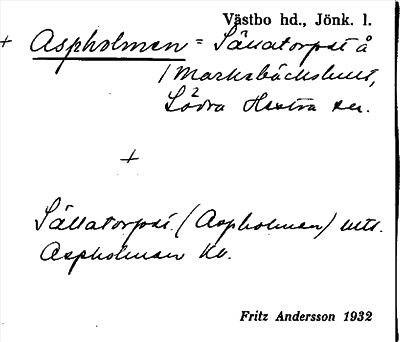 Västbo hd., Jönk. l.
+ Aspholmen = Sällatorpet å
/Marksbäckshult,
Södra Hestra sn.
+
Sällatorpet. (Aspholmen) utt.
Aspholmen Kb.
Fritz Andersson 1932